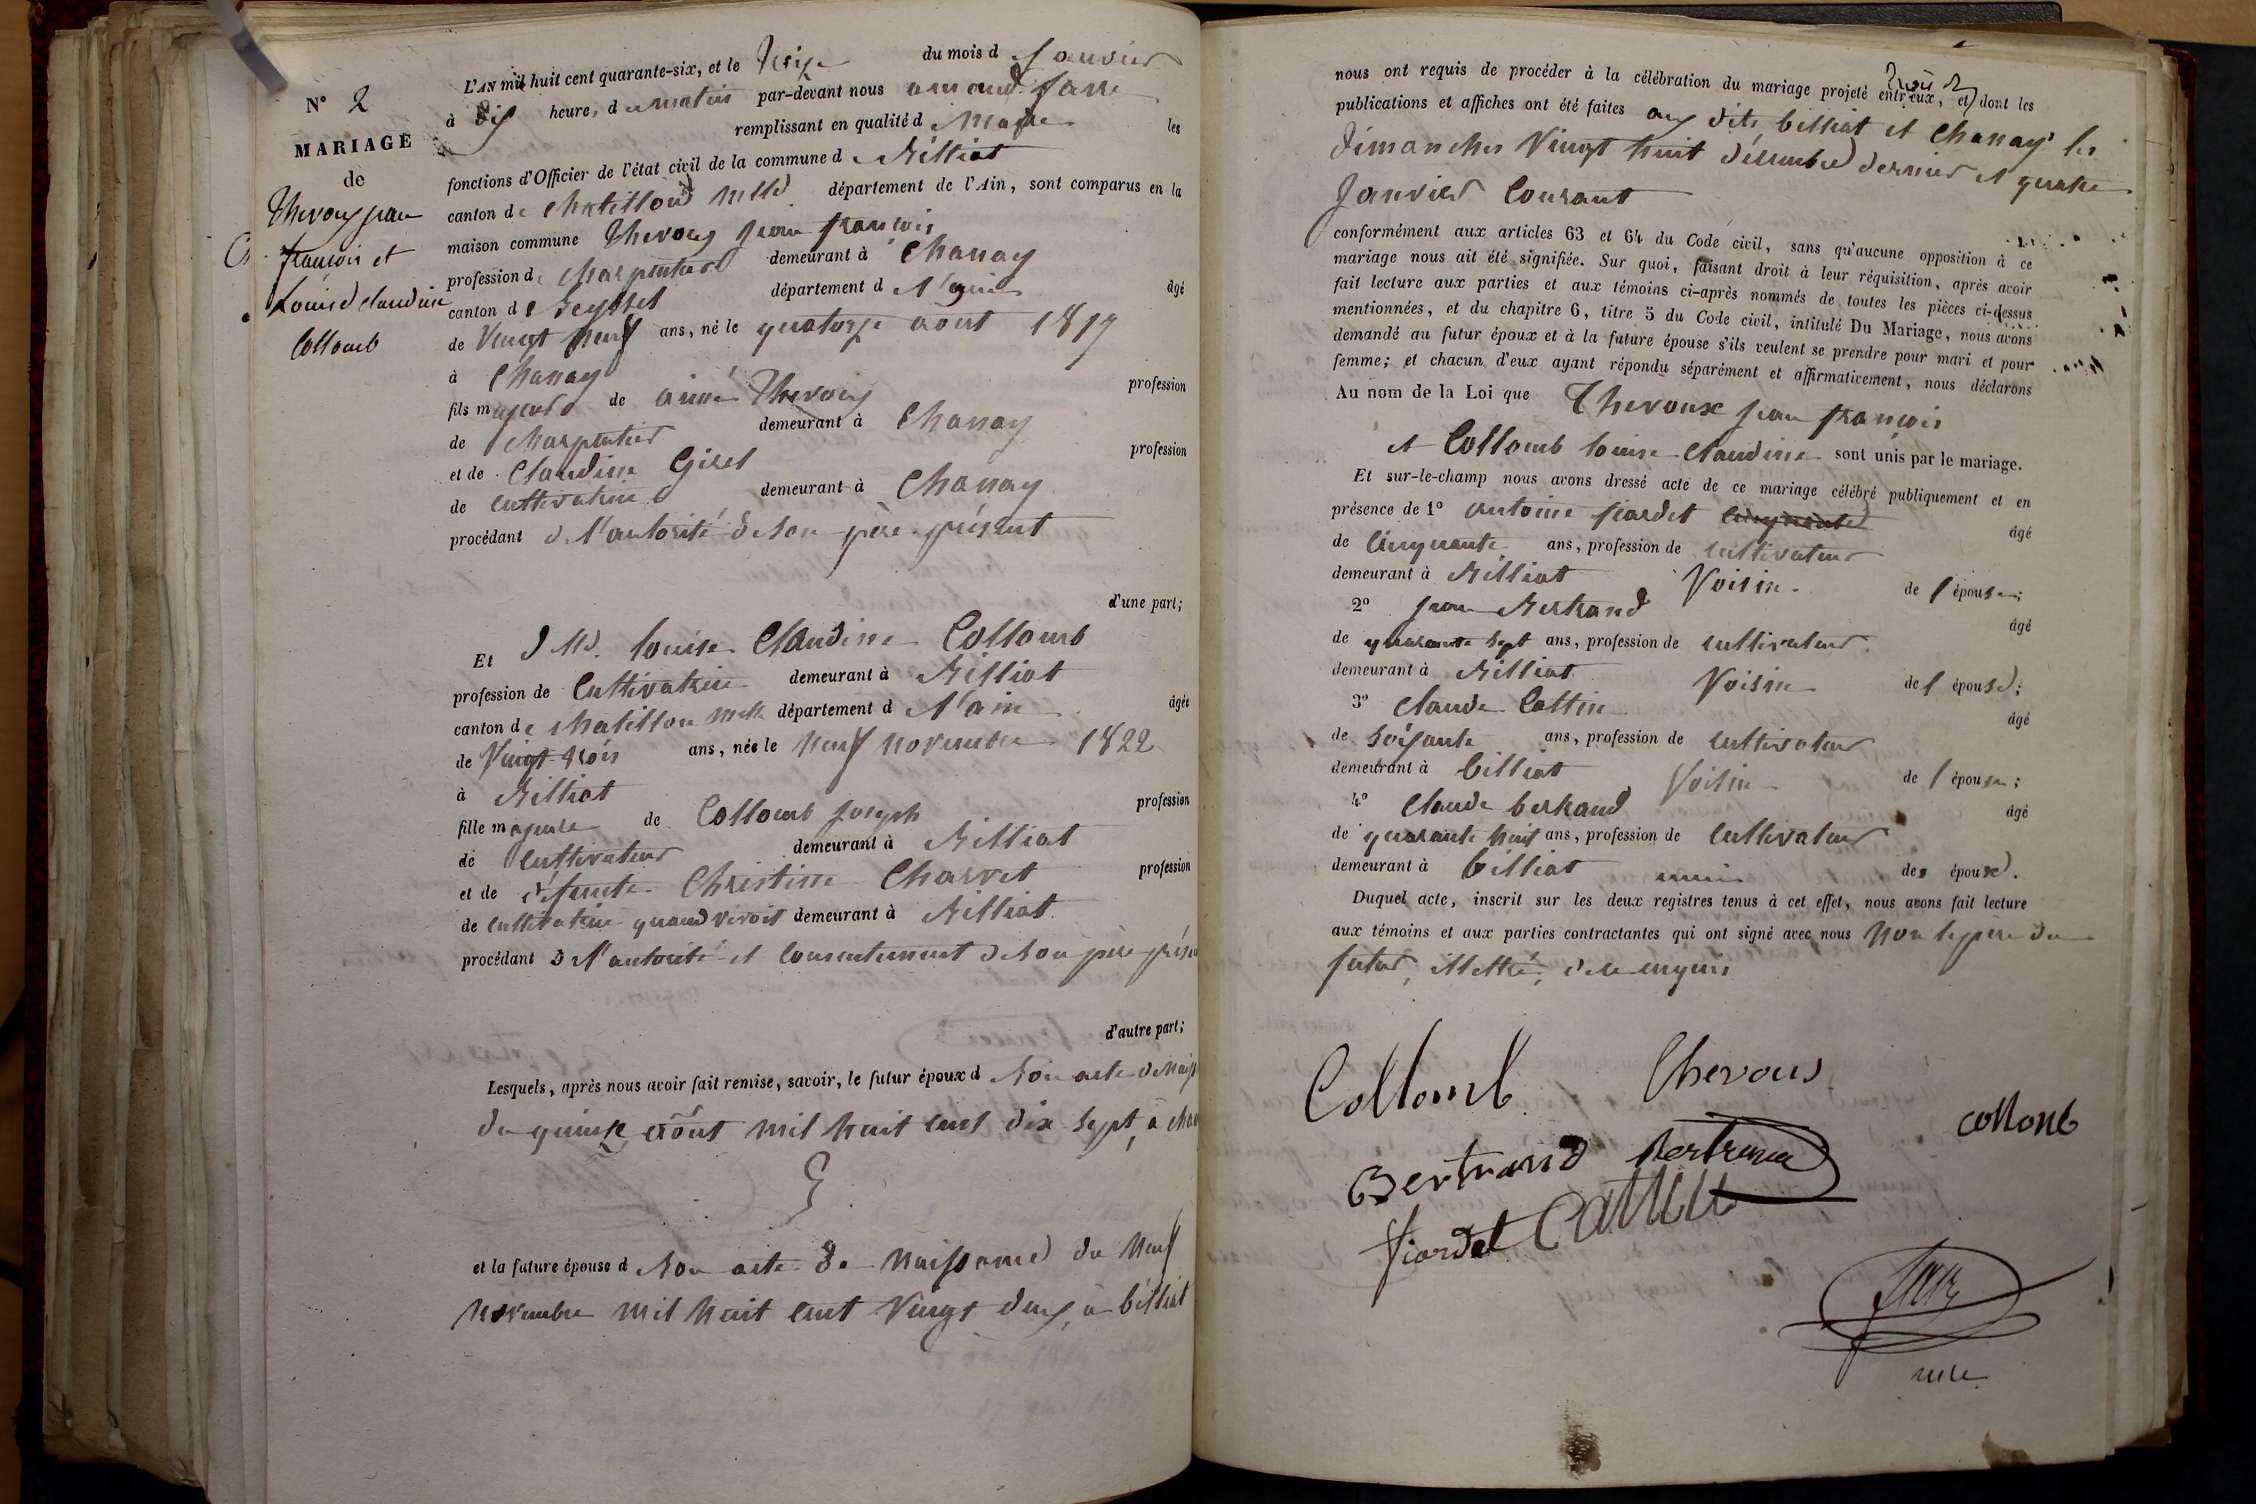 N° 2
MARIAGE
de
Thevoux jean
françois et
Louise Claudine
Collomb
L'AN mil huit cent quarante-six, et le treize du mois de Janvier
à dix heure, du matin par-devant nous amand favre
remplissant en qualité de Maire les
fonctions d'Officier de l'état civil de la commune de Billiat
canton de Chatillon Mlle département de l'Ain, sont comparus en la
maison commune Thevoux jean françois
profession de Charpentier demeurant à Chanay
canton de Seyssel département de l'ain âgé
de Vingt huit ans, né le quatorze août 1817
à Chanay
fils majeur de aimé Thevoux profession
de Charpentier demeurant à Chanay
et de Claudine Girel profession
de cultivatrice demeurant à Chanay
procédant de l'autorité de son père présent
d'une part;
Et Dlle. louise Claudine Collomb
profession de Cultivatrice demeurant à Billiat
canton de Chatillon Mlle département de l'ain âgée
de Vingt trois ans, née le neuf novembre 1822
à Billiat
fille majeure de Collomb joseph profession
de Cultivateur demeurant à Billiat
et de défunte Christine Charvet profession
de cultivatrice quand vivoit demeurant à Billiat
procédant de l'autorité et consentement de son père
d'autre part;
Lesquels, après nous avoir fait remise, savoir, le futur époux de Son acte de
du quinze août mil huit cent dix sept, à
et la future épouse de Son acte de Naissance du Neuf
Novembre mil huit cent vingt deux, à billiat
nous ont requis de procéder à la célébration du mariage projeté entr'eux, et dont les
publications et affiches ont été faites aux dits billiat et Chanay les
dimanches Vingt huit décembre dernier et quatre
Janvier Courant
conformément aux articles 63 et 64 du Code civil, sans qu'aucune opposition à ce
mariage nous ait été signifiée. Sur quoi, faisant droit à leur réquisition, après avoir
fait lecture aux parties et aux témoins ci-après nommés de toutes les pièces ci-dessus
mentionnées, et du chapitre 6, titre 5 du Code civil, intitulé Du Mariage, nous avons
demandé au futur époux et à la future épouse s'ils veulent se prendre pour mari et pour
femme; et chacun d'eux ayant répondu séparément et affirmativement, nous déclarons
Au nom de la Loi que Thevoux jean françois
et Collomb louise Claudine sont unis par le mariage.
Et sur-le-champ nous avons dressé acte de ce mariage célébré publiquement et en
présence de 1° antoine fiardet cinquante âgé
de Cinquante ans, profession de cultivateur
demeurant à Billiat Voisin de l'épouse;
2° jean Bertrand âgé
de quarante sept ans, profession de cultivateur
demeurant à Billiat Voisin de l'épouse;
3° Claude Cattin âgé
de Soixante ans, profession de cultivateur
demeurant à billiat Voisin de l'épouse;
4° Claude bertrand âgé
de quarante huit ans, profession de Cultivateur
demeurant à billiat ami des époux.
Duquel acte, inscrit sur les deux registres tenus à cet effet, nous avons fait lecture
aux témoins et aux parties contractantes qui ont signé avec nous Non le père du
futur, illettré, de ce enquis
Collomb Thevoux
collonb
Bertrand Bertrand
fiardet Cattin
favre